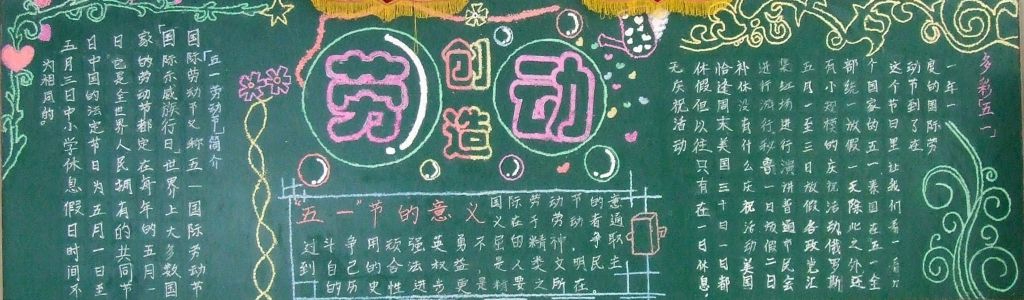 多彩"五一"
一年一
度的国际劳
动节到了在
这个节日里让我们看一看
个国家的五一 泰国在五一全
部统一放假 天除此之外还
有小规模的庆祝活动俄罗斯
五月一至三日放假各政党汇
集红场进行演讲普通市民会
进行游行秘鲁一日放假二日会
补休没有什么庆祝活动美国
恰逢周末美国三十日一日
休假但以往只有在一日休息,
无庆祝活动
劳动
创造
"五一"节的意义
国际劳动节的意
义在于劳动者通
过斗争用顽强英勇不屈的精神争取
到自己的合法权益,是人类文明民主
的历史性进步更是精要之所在.
「五一劳动节」简介
国际劳动节又称五一国际劳动节
「国际示威族行日,世界上大多数国
家的劳动节都定在每年的五月一
日它是全世界人民拥有的共同节
日中国的法定节日为五月一日至
五月三日中小学休息假日时间不